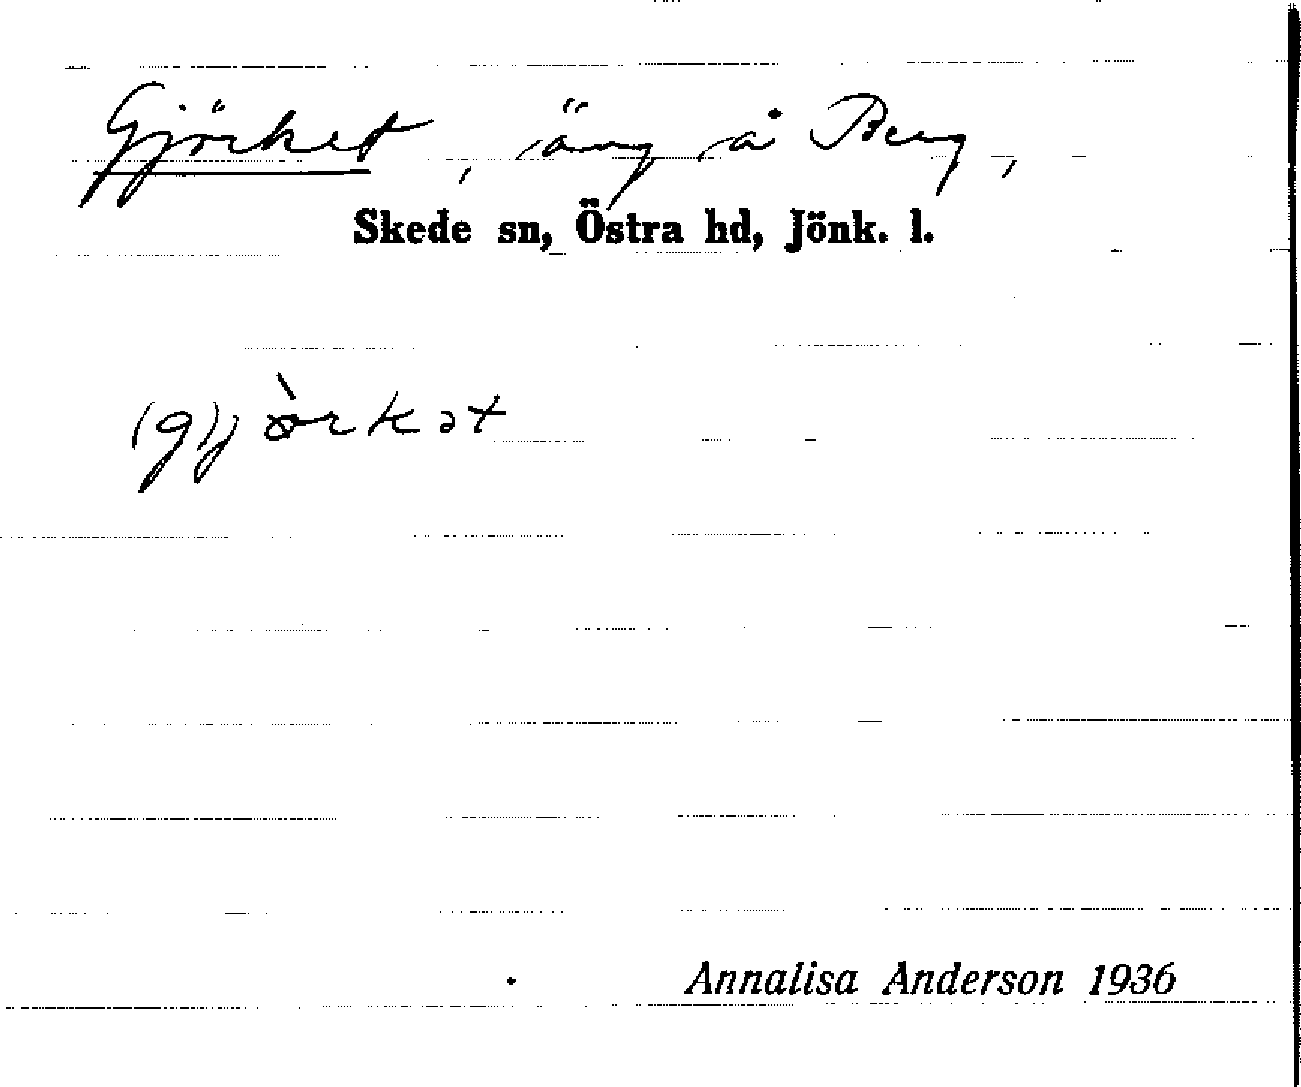 Gjörket, äng å Berg,
Skede sn, Östra hd, Jönk. l.
(g)jòrkət
Annalisa Anderson 1936